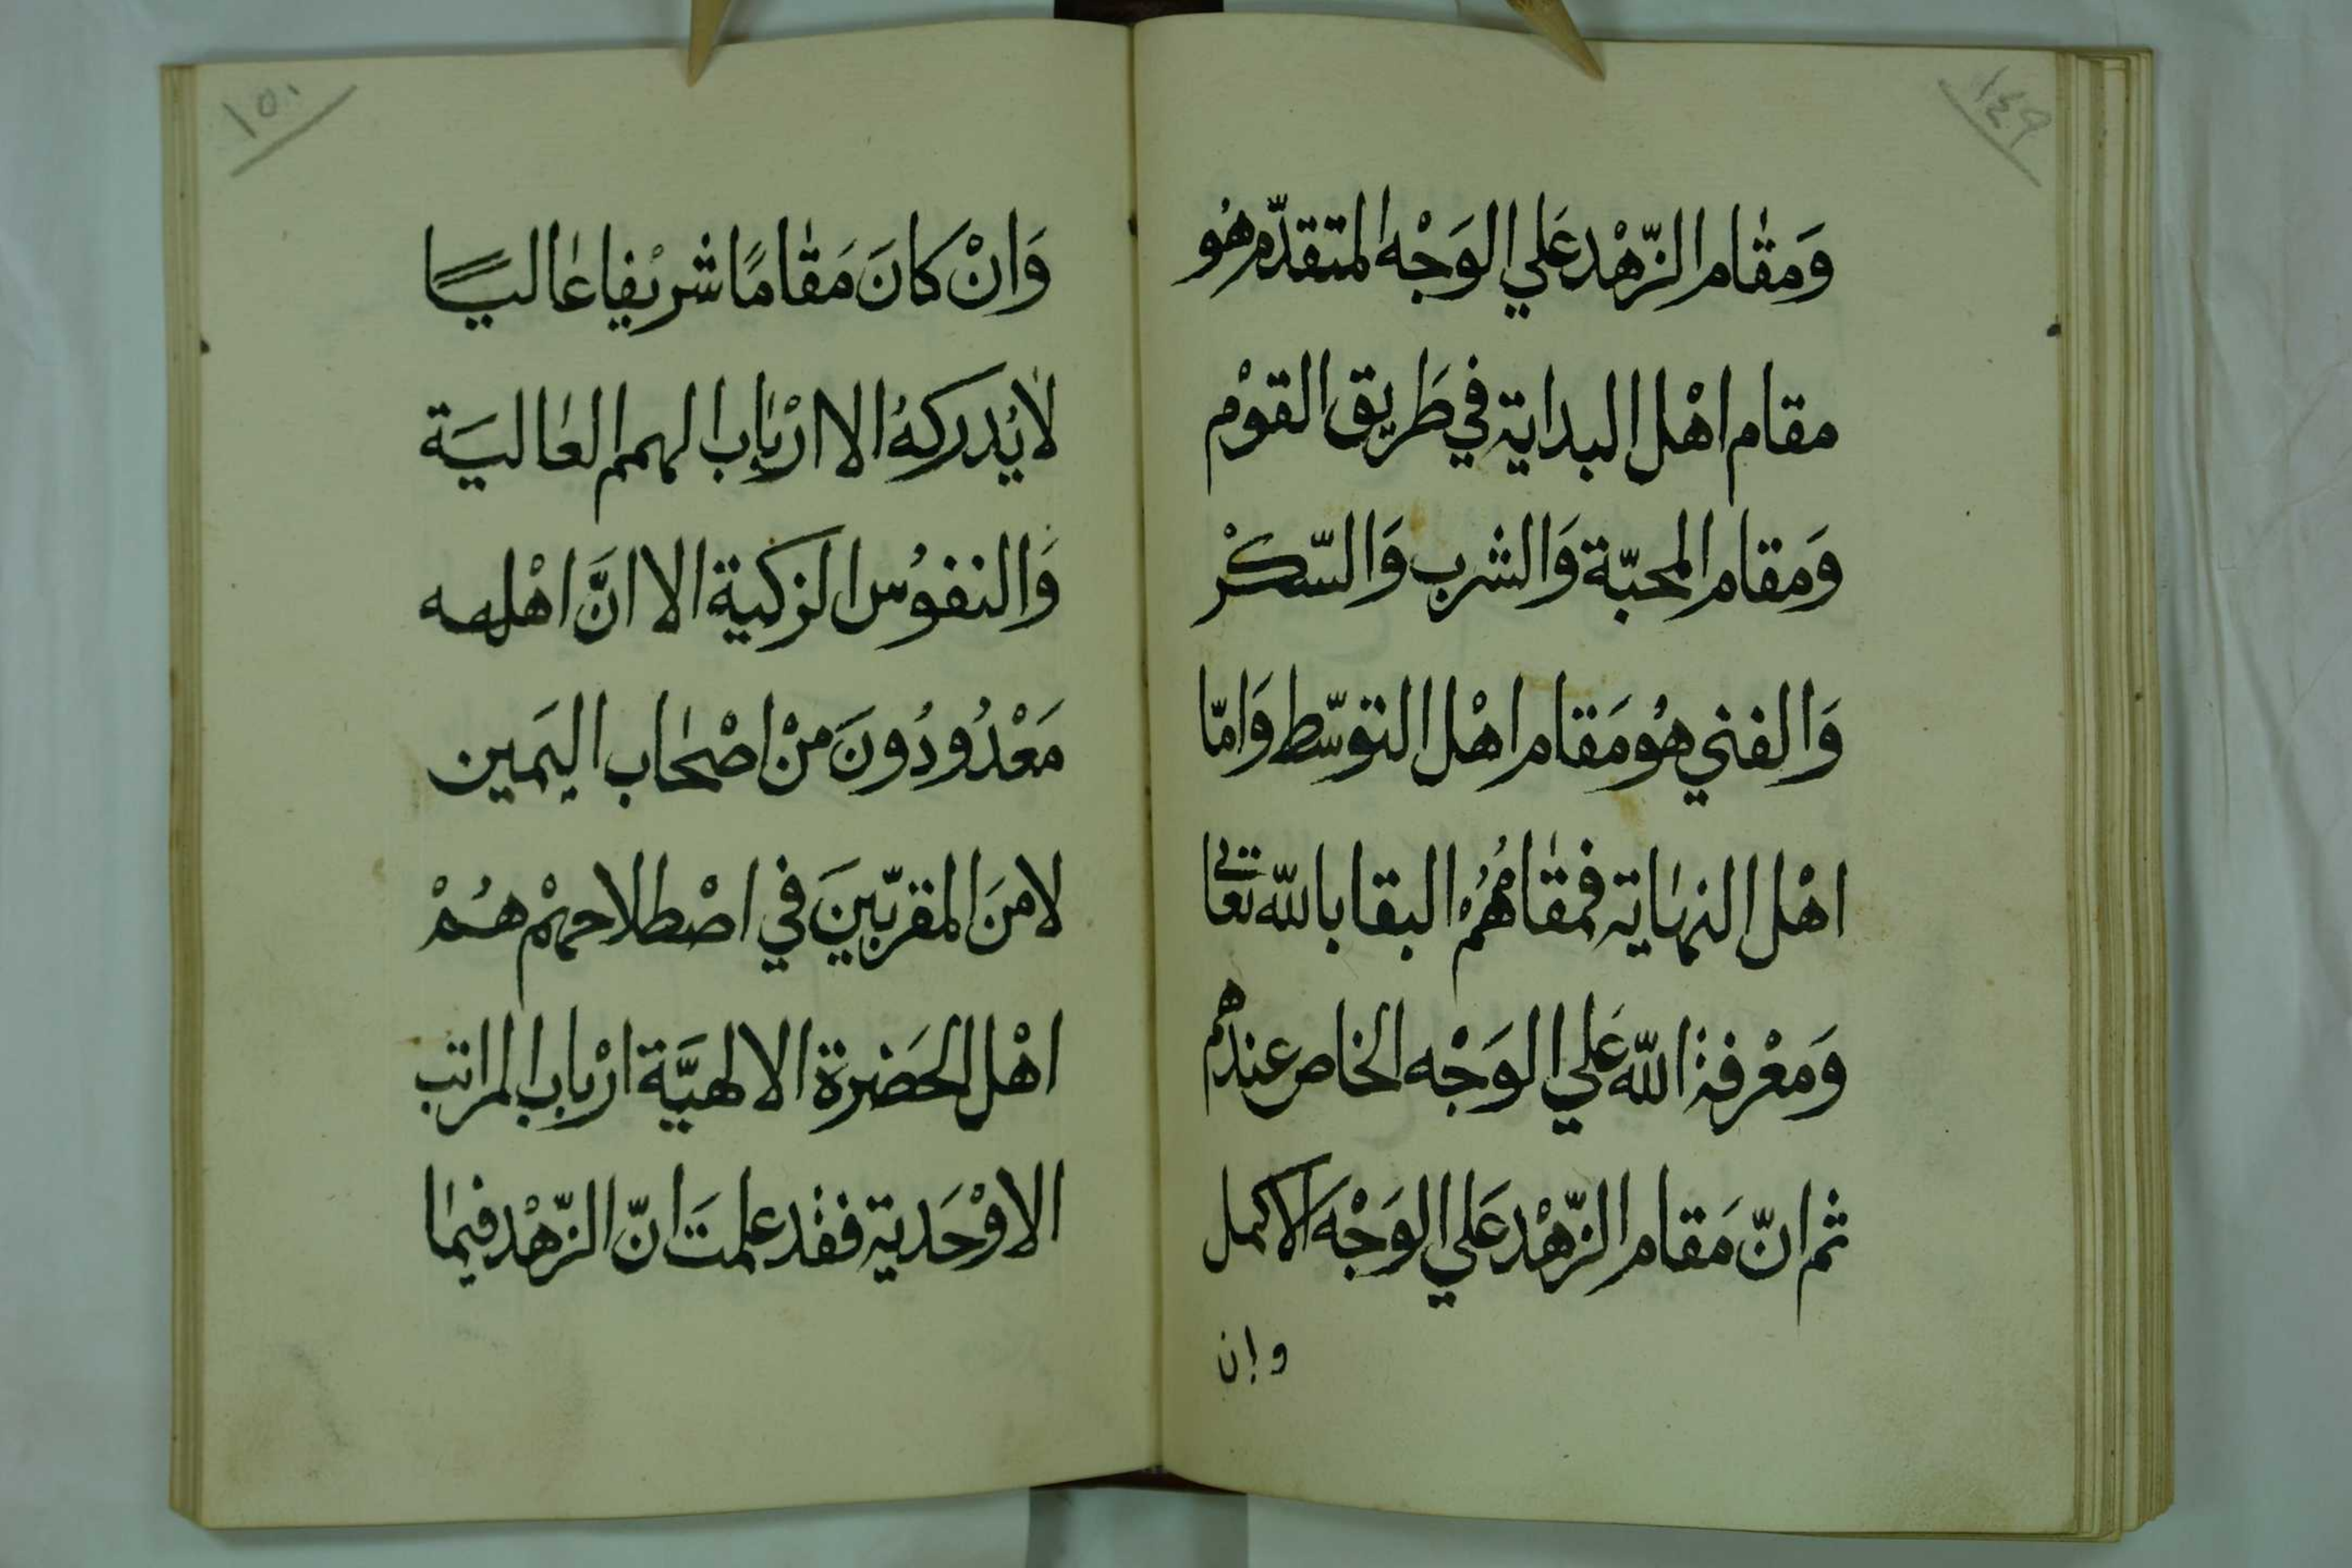 ١٤٩
وَمقٰام الزّهْد عَلي الوَجْه المتقدّم هُو
مقام اهْل البداية في طَريق القوْم
وَمقام المحبّة وَالشرب وَالسّكْر
وَالفني هُو مَقام اهْل التوسّط وَامّا
اهْل النهٰاية فمقٰامُهُمْ البقا بالله تعٰالي
وَمعْرفة الله عَلي الوَجْه الخاص عندهم
ثم انّ مَقام الزّهْد عَلي الوَجْه الاكمل
وان
١٥٠
وَانْ كانَ مَقٰامًا شريْفا عٰاليًا
لٰا يُدركهُ الا ارْبٰاب الهمم العٰاليَة
وَالنفوُس الزكية الا انَّ اهْله
مَعْدُودُونَ منْ اصْحٰاب اليَمين
لا منَ المقرّبّينَ في اصْطلاحهمْ هُمْ
اهْل الحَضرة الالهيَّة ارْباب المراتب
الاوْحَدية فقد علمتَ انّ الزّهْد فيمٰا